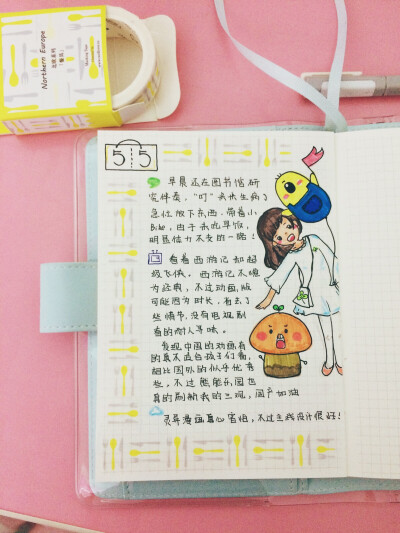 Northern Europe
北欧系列
「餐具」
Masking Tape
5 5
早晨还在图书馆研
究伴奏，"叮"
生病了
急忙放下东西，带着小
Bike，由于未吃早饭，
明显体力不支的一路！
看着西游记和超
级飞侠。西游记不愧
为经典，不过动画版
可能因为时长，省去了
些情节，没有电视剧
看的耐人寻味。
发现中国的动画有
的真不适合孩子们看，
相比国外的似乎优秀
些，不过熊熊乐园也
真的刷新我的三观，国产加油
灵异漫画真心害怕，不过主线设计很好！